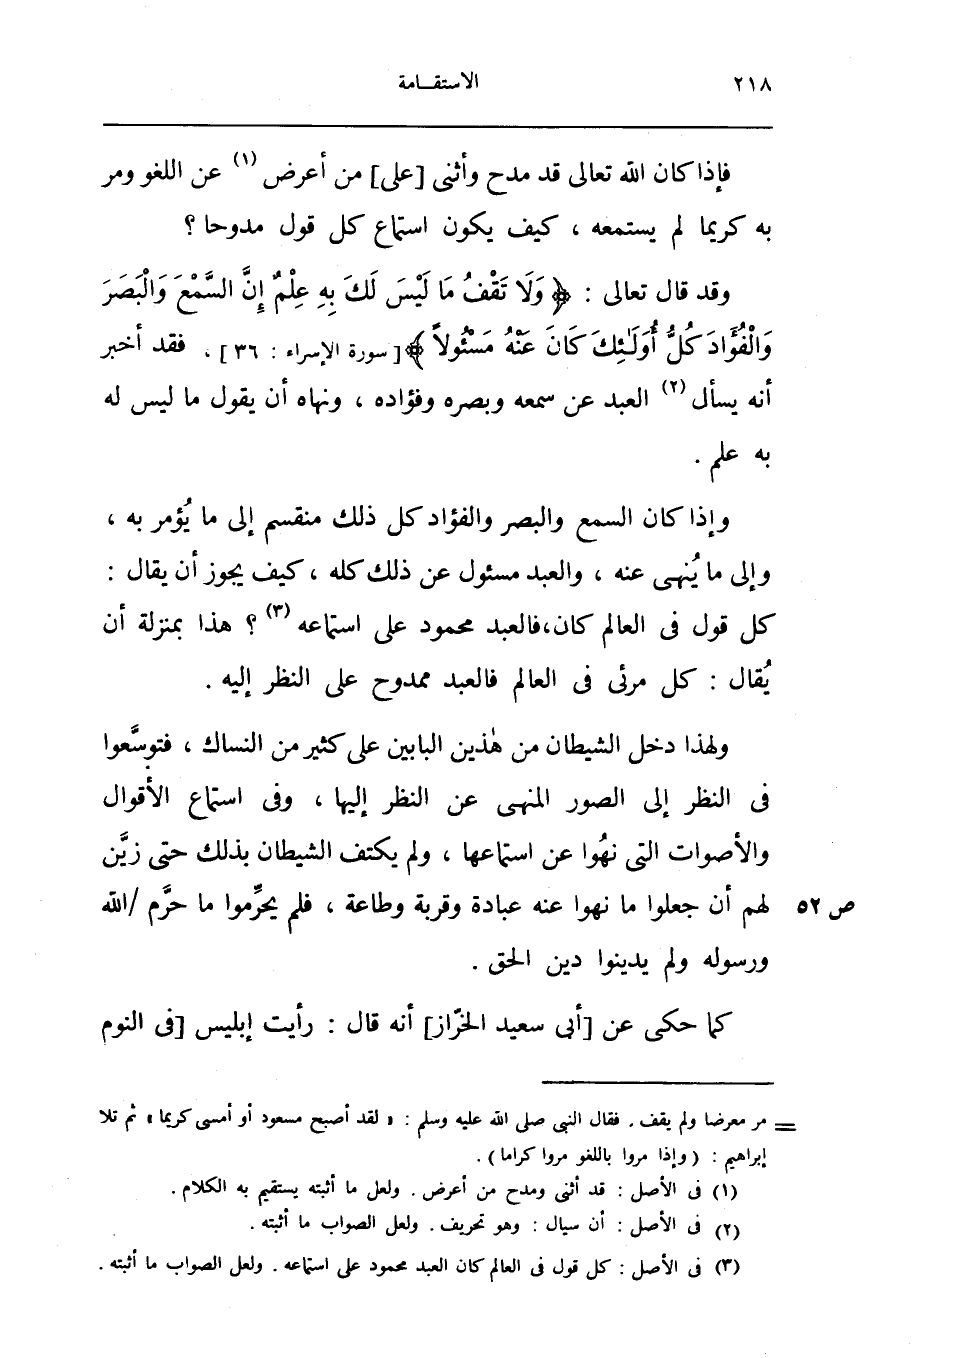 ٢١٨
الاستقـامة
فإذا كان الله تعالى قد مدح وأثنى [على] من أعرض (١) عن اللغو ومر
به كريما لم يستمعه ، كيف يكون استماع كل قول مدوحا ؟
وقد قال تعالى : ﴿ وَلَا تَقْفُ مَا لَيْسَ لَكَ بِهِ عِلْمٌ إِنَّ السَّمْعَ وَالْبَصَرَ
وَالْفُؤَادَ كُلُّ أُوَلَٰئِكَ كَانَ عَنْهُ مَسْئُولاً ﴾ [ سورة الإسراء : ٣٦ ] ، فقد أخبر
أنه يسأل (٢) العبد عن سمعه وبصره وفؤاده ، ونهاه أن يقول ما ليس له
به علم .
وإذا كان السمع والبصر والفؤاد كل ذلك منقسم إلى ما يُؤمر به ،
وإلى ما يُنهى عنه ، والعبد مسئول عن ذلك كله ، كيف يجوز أن يقال :
كل قول فى العالم كان،فالعبد محمود على استماعه (٣) ؟ هذا بمنزلة أن
يُقال : كل مرئى فى العالم فالعبد ممدوح على النظر إليه .
ولهذا دخل الشيطان من هٰذين البابين على كثير من النساك ، فتوسَّعوا
فى النظر إلى الصور المنهى عن النظر إليها ، وفى استماع الأقوال
والأصوات التى نهُوا عن استماعها ، ولم يكتف الشيطان بذلك حتى زيَّن
لهم أن جعلوا ما نهوا عنه عبادة وقربة وطاعة ، فلم يحرِّموا ما حرَّم /الله ص ٥٢
ورسوله ولم يدينوا دين الحق .
كما حكى عن [أبى سعيد الخرّاز] أنه قال : رأيت إبليس [فى النوم
= مر معرضا ولم يقف . فقال النبى صلى الله عليه وسلم : « لقد أصبح مسعود أو أمسى كريما » ثم تلا
إبراهيم : ( وإذا مروا باللغو مروا كراما ) .
(١) فى الأصل : قد أثنى ومدح من أعرض . ولعل ما أثبته يستقيم به الكلام .
(٢) فى الأصل : أن سيال : وهو تحريف . ولعل الصواب ما أثبته .
(٣) فى الأصل : كل قول فى العالم كان العبد محمود على استماعه . ولعل الصواب ما أثبته .